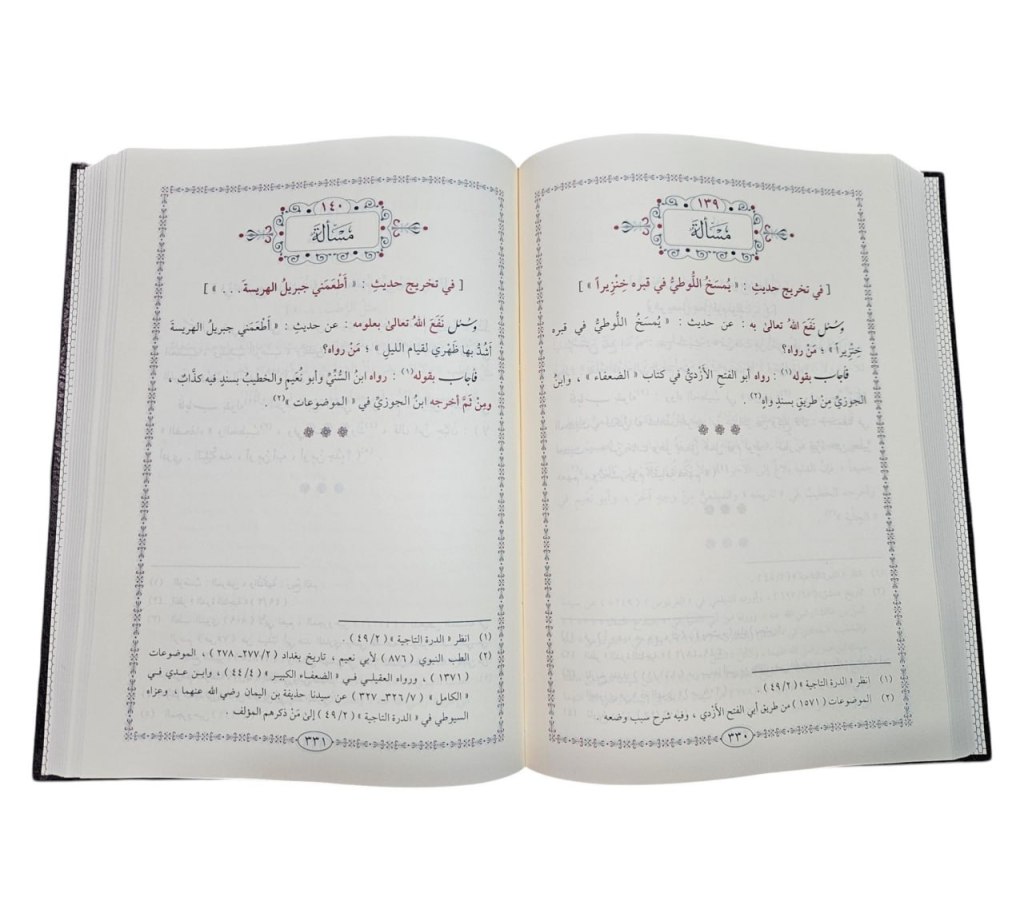 ١٣٩
مَسْأَلَة
[ في تخريج حديثِ : « يُمسَخُ اللُّوطيُّ في قبره خِنْزِيراً » ]
وسُئل نَفَعَ اللهُ تعالىٰ به : عن حديث : « يُمسَخُ اللُّوطيُّ في قبره
خِنْزِيراً » ؛ مَنْ رواه؟
فأجاب بقوله(١) : رواه أبو الفتحِ الأَزْديُّ في كتاب « الضعفاء » ، وابنُ
الجوزيِّ مِنْ طريقٍ بسندٍ واهٍ(٢) .
(١) انظر « الدرة التاجية » ( ٤٩/٢ ) .
(٢) الموضوعات ( ١٥٧١ ) من طريق أبي الفتح الأَزْدي ، وفيه شرح سبب وضعه .
٣٣٠
١٤٠
مَسْأَلَة
[ في تخريج حديثِ : « أَطْعَمَني جبريلُ الهريسةَ . . . » ]
وسُئل نَفَعَ اللهُ تعالىٰ بعلومه : عن حديثِ : « أَطْعَمَني جبريلُ الهريسةَ
أَشُدُّ بها ظَهْري لقيام الليلِ » ؛ مَنْ رواه؟
فأجاب بقوله(١) : رواه ابنُ السُّنِّيِّ وأبو نُعَيمٍ والخطيبُ بسندٍ فيه كذّابٌ ،
ومِنْ ثَمَّ أخرجه ابنُ الجوزيِّ في « الموضوعات »(٢) .
(١) انظر « الدرة التاجية » ( ٤٩/٢ ) .
(٢) الطب النبوي ( ٨٧٦ ) لأبي نعيم ، تاريخ بغداد ( ٢٧٧/٢ـ ٢٧٨ ) ، الموضوعات
( ١٣٧١ ) ، ورواه العقيلي في « الضعفاء الكبير » ( ٤٤/٤ ) ، وابن عدي في
« الكامل » ( ٣٢٦/٧ـ ٣٢٧ ) عن سيدنا حذيفة بن اليمان رضي الله عنهما ، وعزاه
السيوطي في « الدرة التاجية » ( ٤٩/٢ ) إلىٰ مَنْ ذكرهم المؤلف .
٣٣١